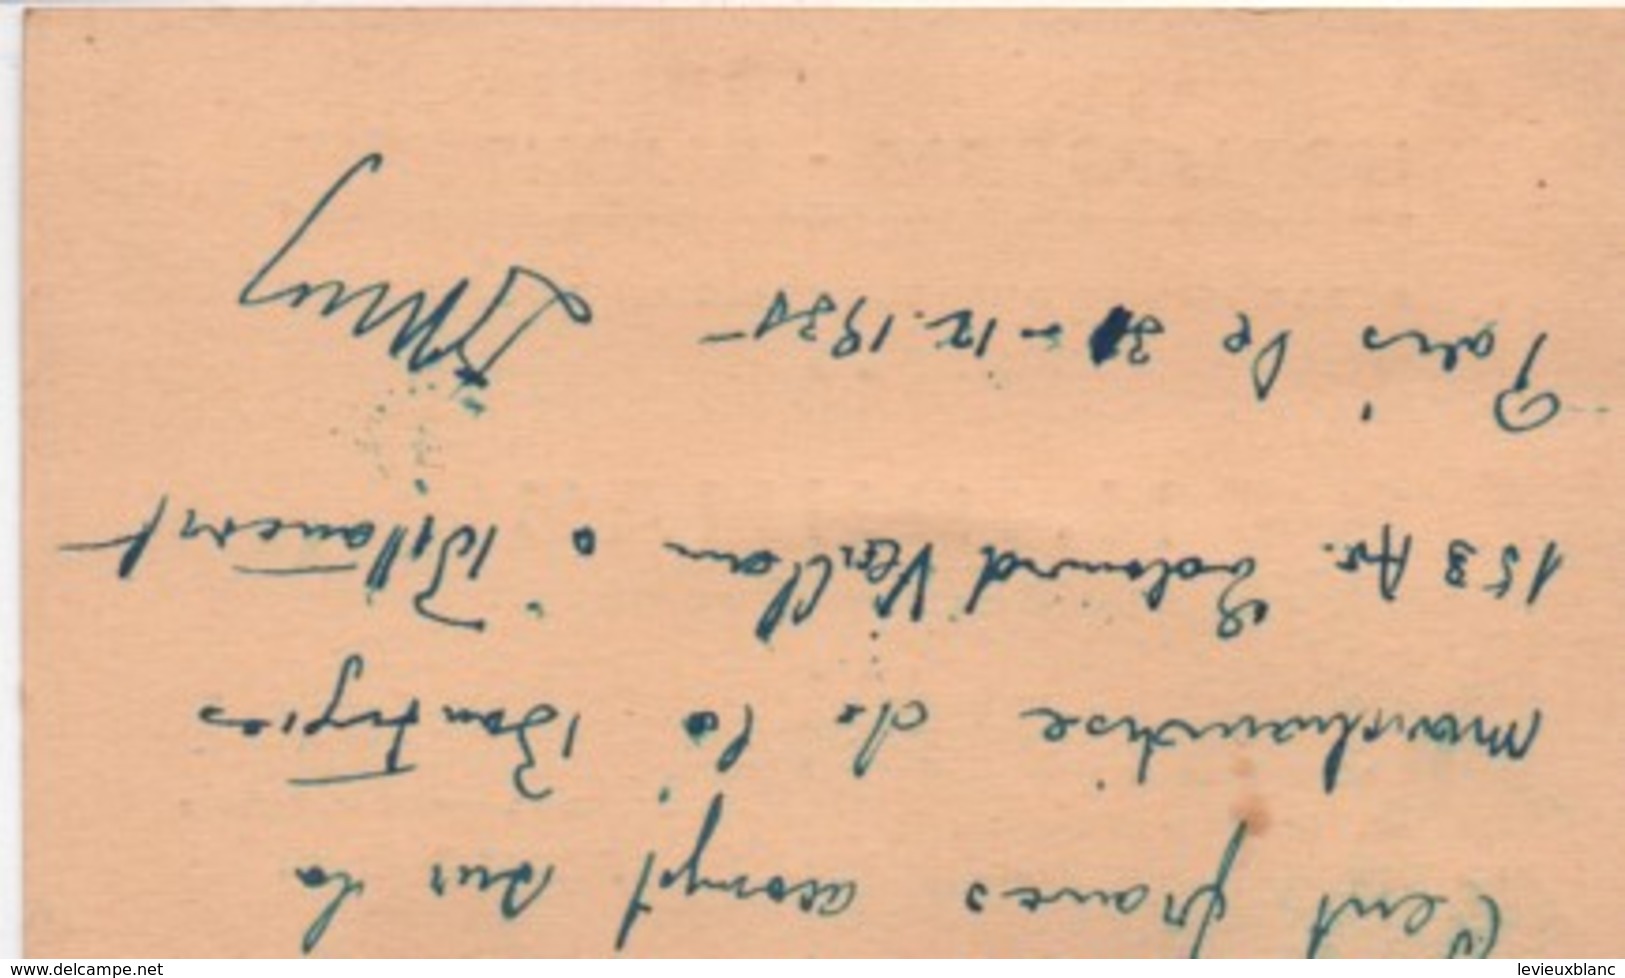 Cent francs acompt sur la
marchandise de la Boutique
153 Av. Edouard Vaillan a Billancourt
Paris le 31-12.1935
www.delcampe.net
levieuxblanc